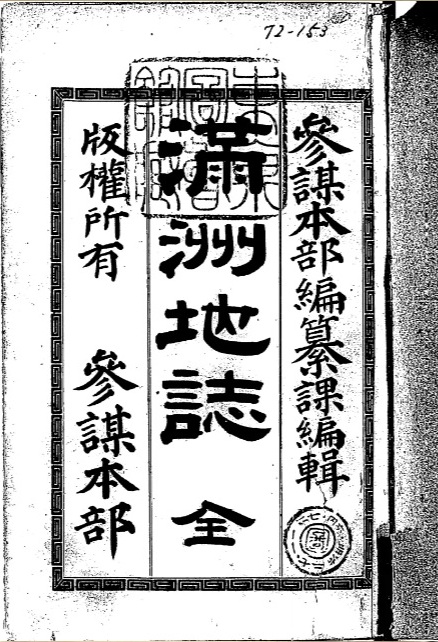 72-153
參謀本部編纂課編輯
滿洲地誌 全
版權所有 參謀本部